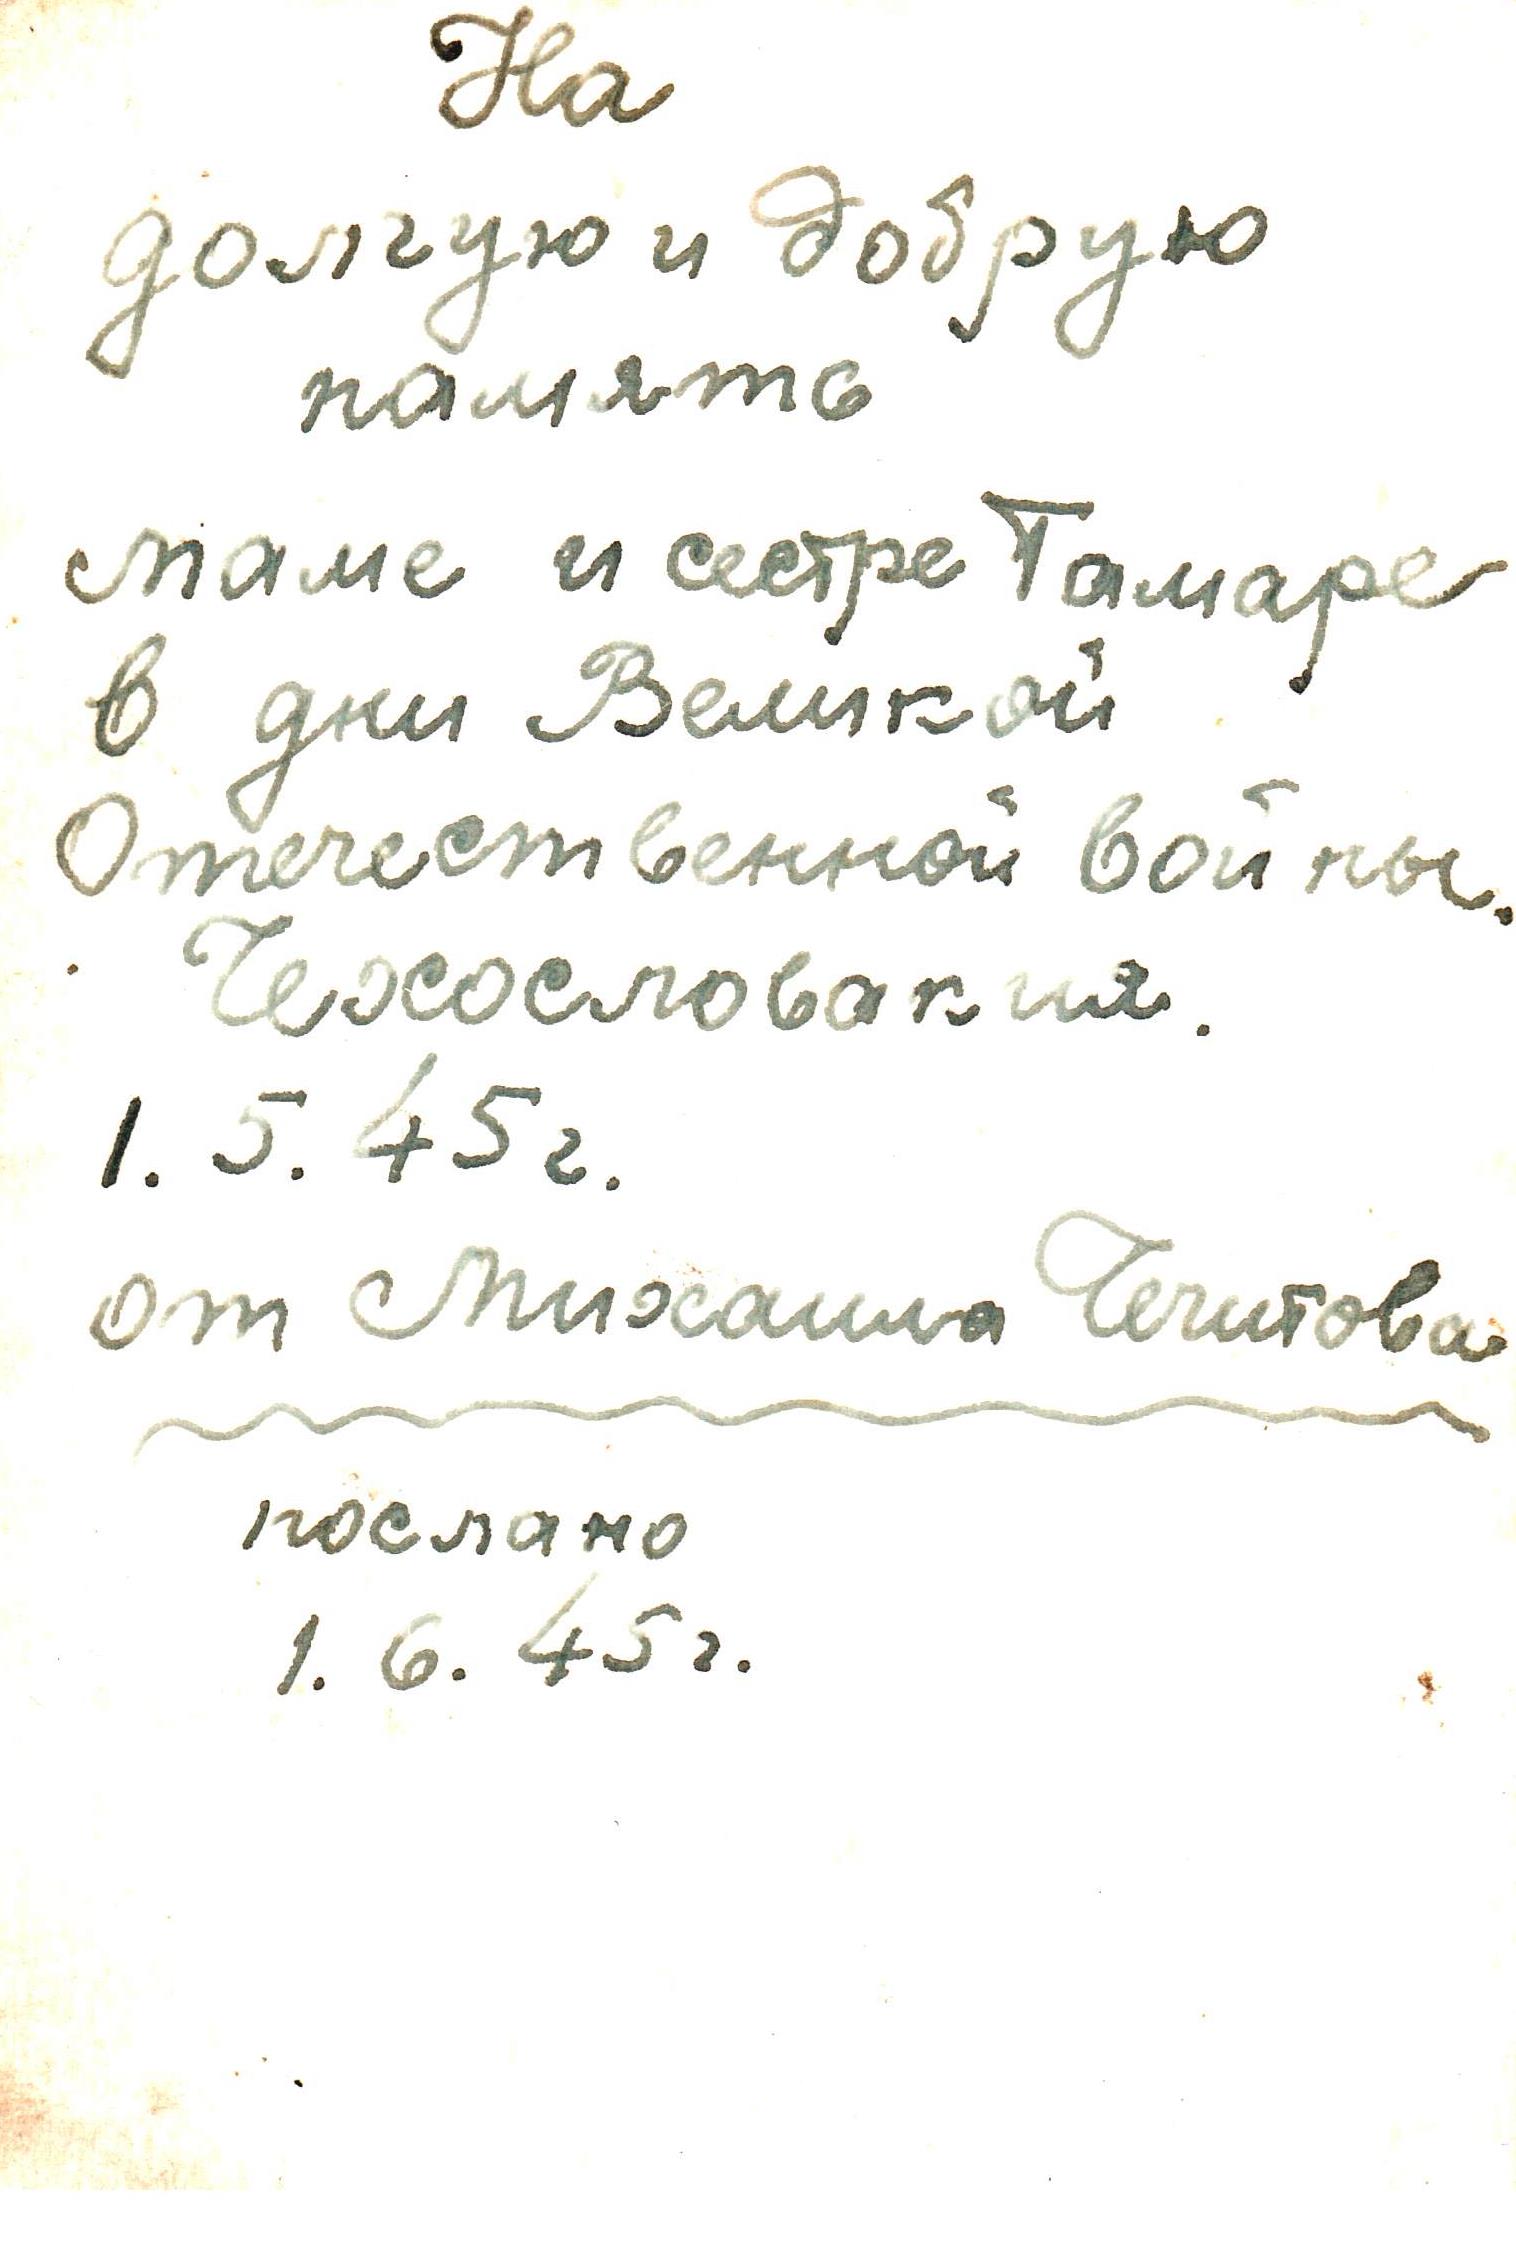 На
долгую и добрую
память
маме и сестре Тамаре
в дни Великой
Отечественной войны.
Чехословакия.
1. 5. 45г.
от Михаила Чечитова
послано
1. 6. 45г.